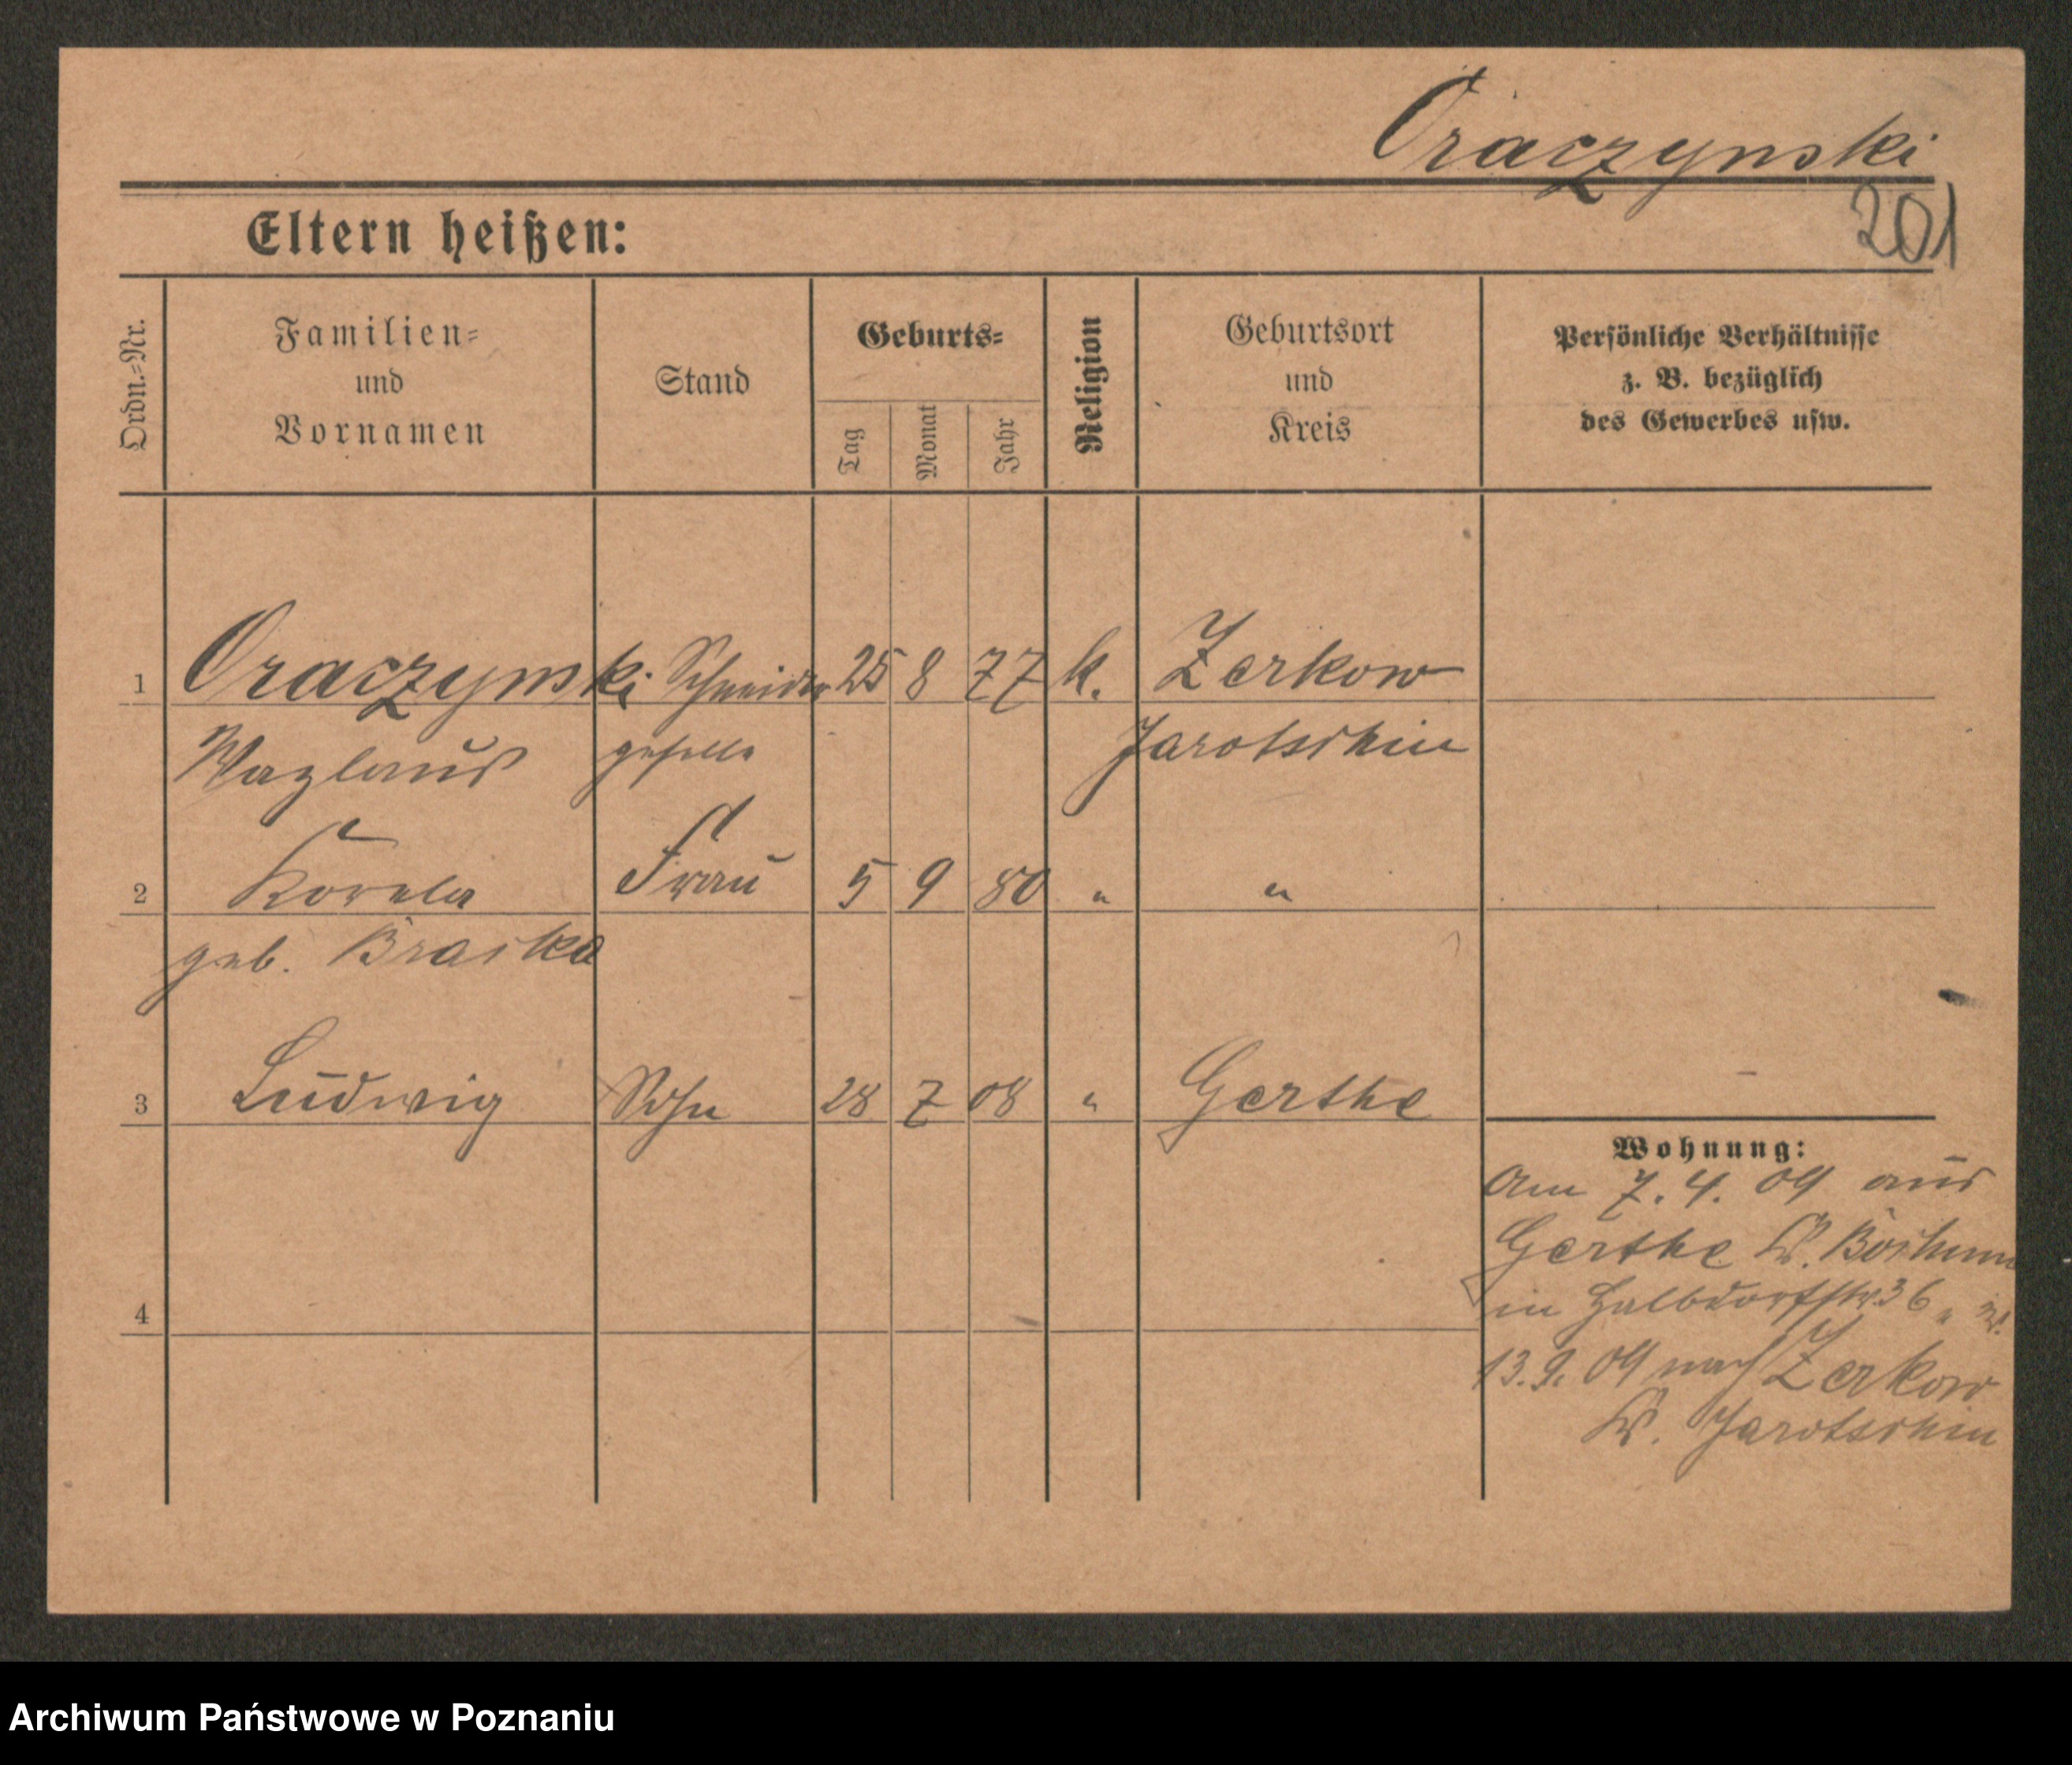 Oraczynski
201
Eltern heißen:
Ordn.-Nr.
Familien- und Vornamen
Stand
Geburts-
Tag
Monat
Jahr
Religion
Geburtsort und Kreis
Persönliche Verhältnisse
z. B. bezüglich
des Gewerbes usw.
1 Oraczynski Schneider 25 8 77 k. Zerkow
Wazlaus geselle Jarotschin
2 Korela Frau 5 9 80 " "
geb. Braska
3 Ludwig Sohn 28 7 08 " Gerthe
4
Wohnung:
Am 7. 4. 09 aus
Gerthe Kr. Bochum
in Halbdorfstr. 36
13. 9. 09 nach Zerkow
Kr. Jarotschin
Archiwum Państwowe w Poznaniu